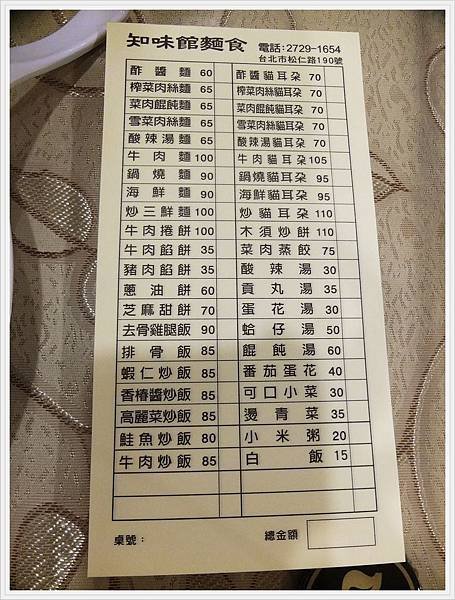 知味館麵食 電話:2729-1654
台北市松仁路190號
酢醬麵 60 酢醬貓耳朶 70
榨菜肉絲麵 65 榨菜肉絲貓耳朶 70
菜肉餛飩麵 65 菜肉餛飩貓耳朶 70
雪菜肉絲麵 65 雪菜肉絲貓耳朶 70
酸辣湯麵 65 酸辣湯貓耳朶 70
牛肉麵 100 牛肉貓耳朶 105
鍋燒麵 90 鍋燒貓耳朶 95
海鮮麵 90 海鮮貓耳朶 95
炒三鮮麵 100 炒貓耳朶 110
牛肉捲餅 100 木須炒餅 110
牛肉餡餅 35 菜肉蒸餃 75
豬肉餡餅 35 酸辣湯 30
蔥油餅 60 貢丸湯 35
芝麻甜餅 70 蛋花湯 30
去骨雞腿飯 90 蛤仔湯 50
排骨飯 85 餛飩湯 60
蝦仁炒飯 85 番茄蛋花 40
香椿醬炒飯 85 可口小菜 30
高麗菜炒飯 85 燙青菜 35
鮭魚炒飯 80 小米粥 20
牛肉炒飯 85 白飯 15
桌號: 總金額